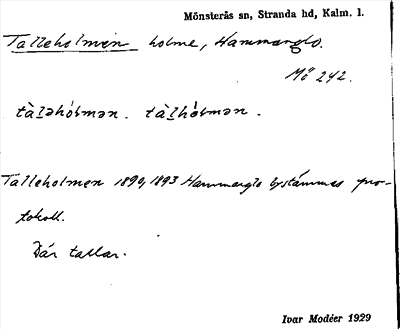 Mönsterås sn, Stranda hd, Kalm. l.
Talleholmen holme, Hammarglo.
Mö 242.
tàlǝhólmǝn. tàlhólmǝn.
Talleholmen 1890, 1893 Hammarglo bystämmas pro-
tokoll.
Där tallar.
Ivar Modéer 1929